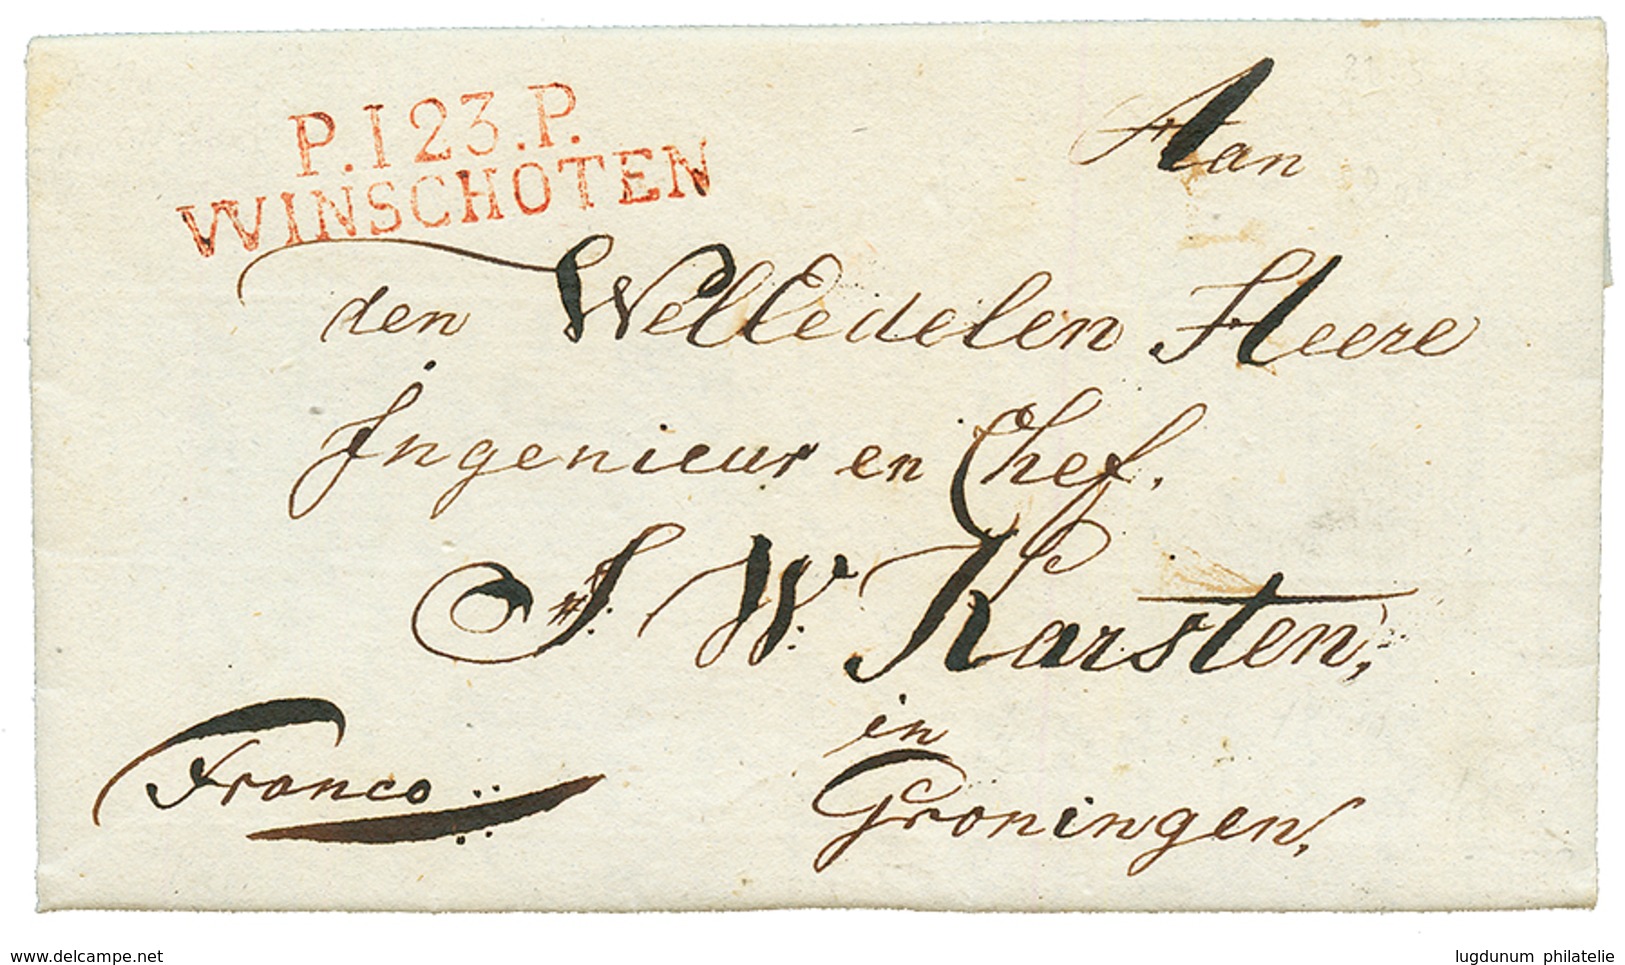 P.123.P.
WINSCHOTEN
Aan
den Welledelen Heere
Ingenieur en Chef.
J. W. Karsten,
in
Groningen,
Franco
www.delcampe.net
lugdunum philatelie